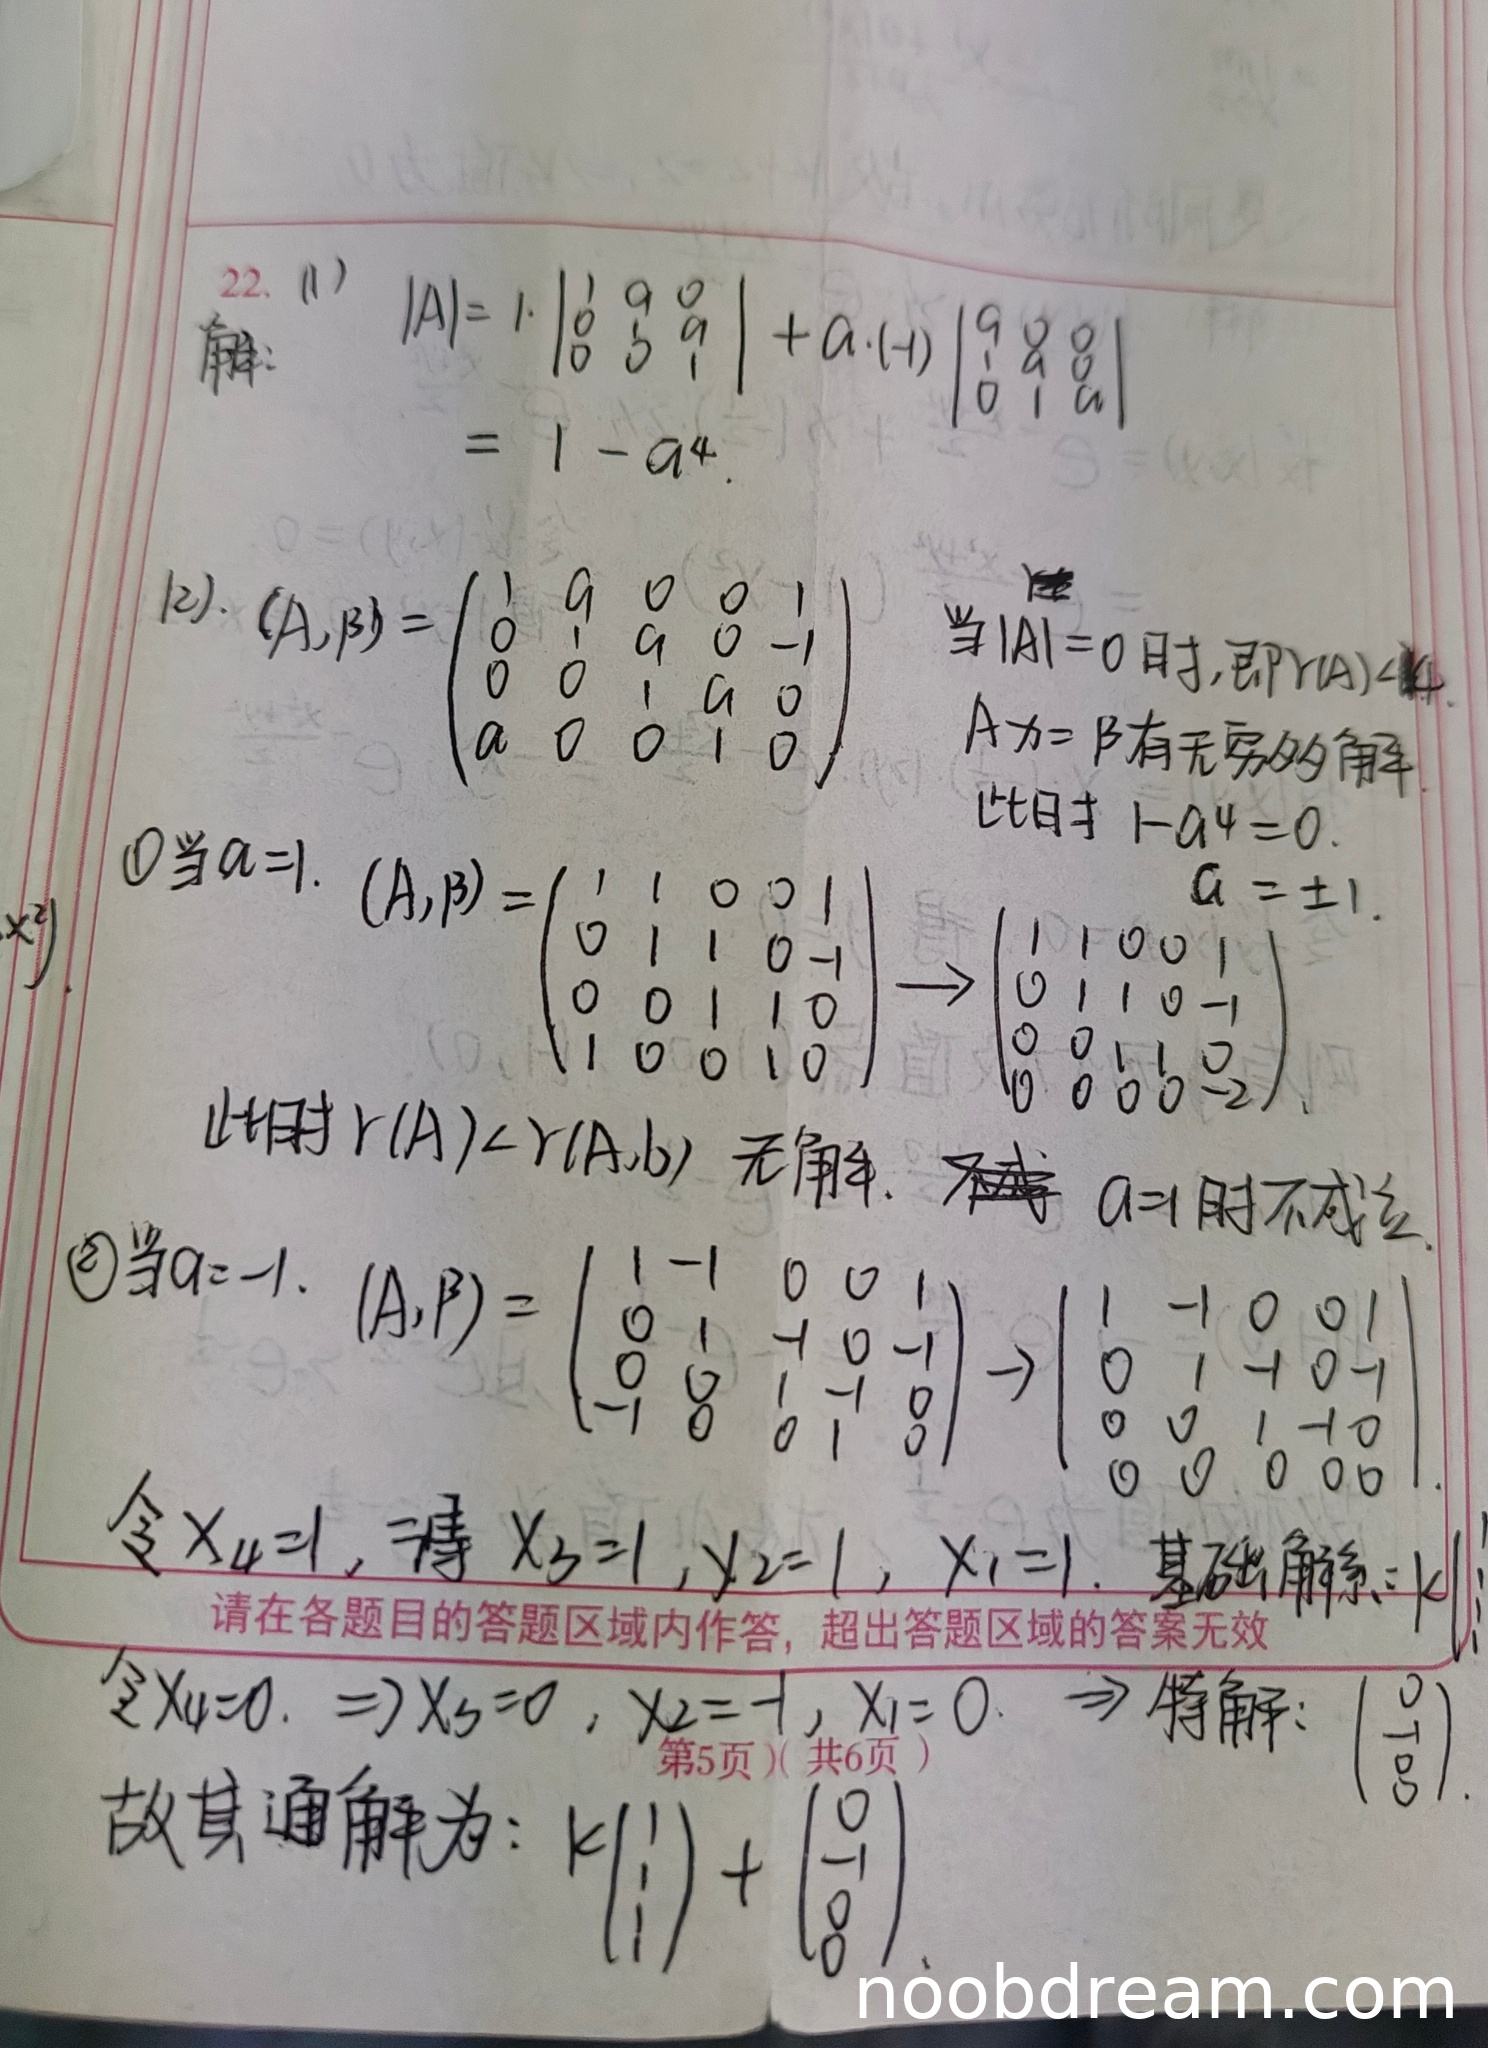 22. (1)
解:
|A| = 1· | 1 a 0 ; 0 1 a ; 0 0 1 | + a·(-1) | a 0 0 ; 1 a 0 ; 0 1 a |
= 1 - a⁴.
(2). (A, β) = ( 1 a 0 0 1 ; 0 1 a 0 -1 ; 0 0 1 a 0 ; a 0 0 1 0 )
当|A|=0时, 即r(A)<4.
Ax = β有无穷多解.
此时 1-a⁴=0.
a = ±1.
①当a=1. (A, β) = ( 1 1 0 0 1 ; 0 1 1 0 -1 ; 0 0 1 1 0 ; 1 0 0 1 0 ) → ( 1 1 0 0 1 ; 0 1 1 0 -1 ; 0 0 1 1 0 ; 0 0 0 0 -2 ).
x²).
此时 r(A)<r(A,b) 无解. a=1时不成立.
②当a=-1. (A, β) = ( 1 -1 0 0 1 ; 0 1 -1 0 -1 ; 0 0 1 -1 0 ; -1 0 0 1 0 ) → ( 1 -1 0 0 1 ; 0 1 -1 0 -1 ; 0 0 1 -1 0 ; 0 0 0 0 0 ).
令 x₄=1, 得 x₃=1, x₂=1, x₁=1. 基础解系: k( 1 ; 1 ; 1 ; 1
请在各题目的答题区域内作答，超出答题区域的答案无效
令x₄=0. ⇒ x₃=0, x₂=-1, x₁=0. ⇒ 特解: ( 0 ; -1 ; 0 ; 0 ).
第5页 ）（ 共6页 ）
故其通解为: k( 1 ; 1 ; 1 ; 1 ) + ( 0 ; -1 ; 0 ; 0 ).
noobdream.com